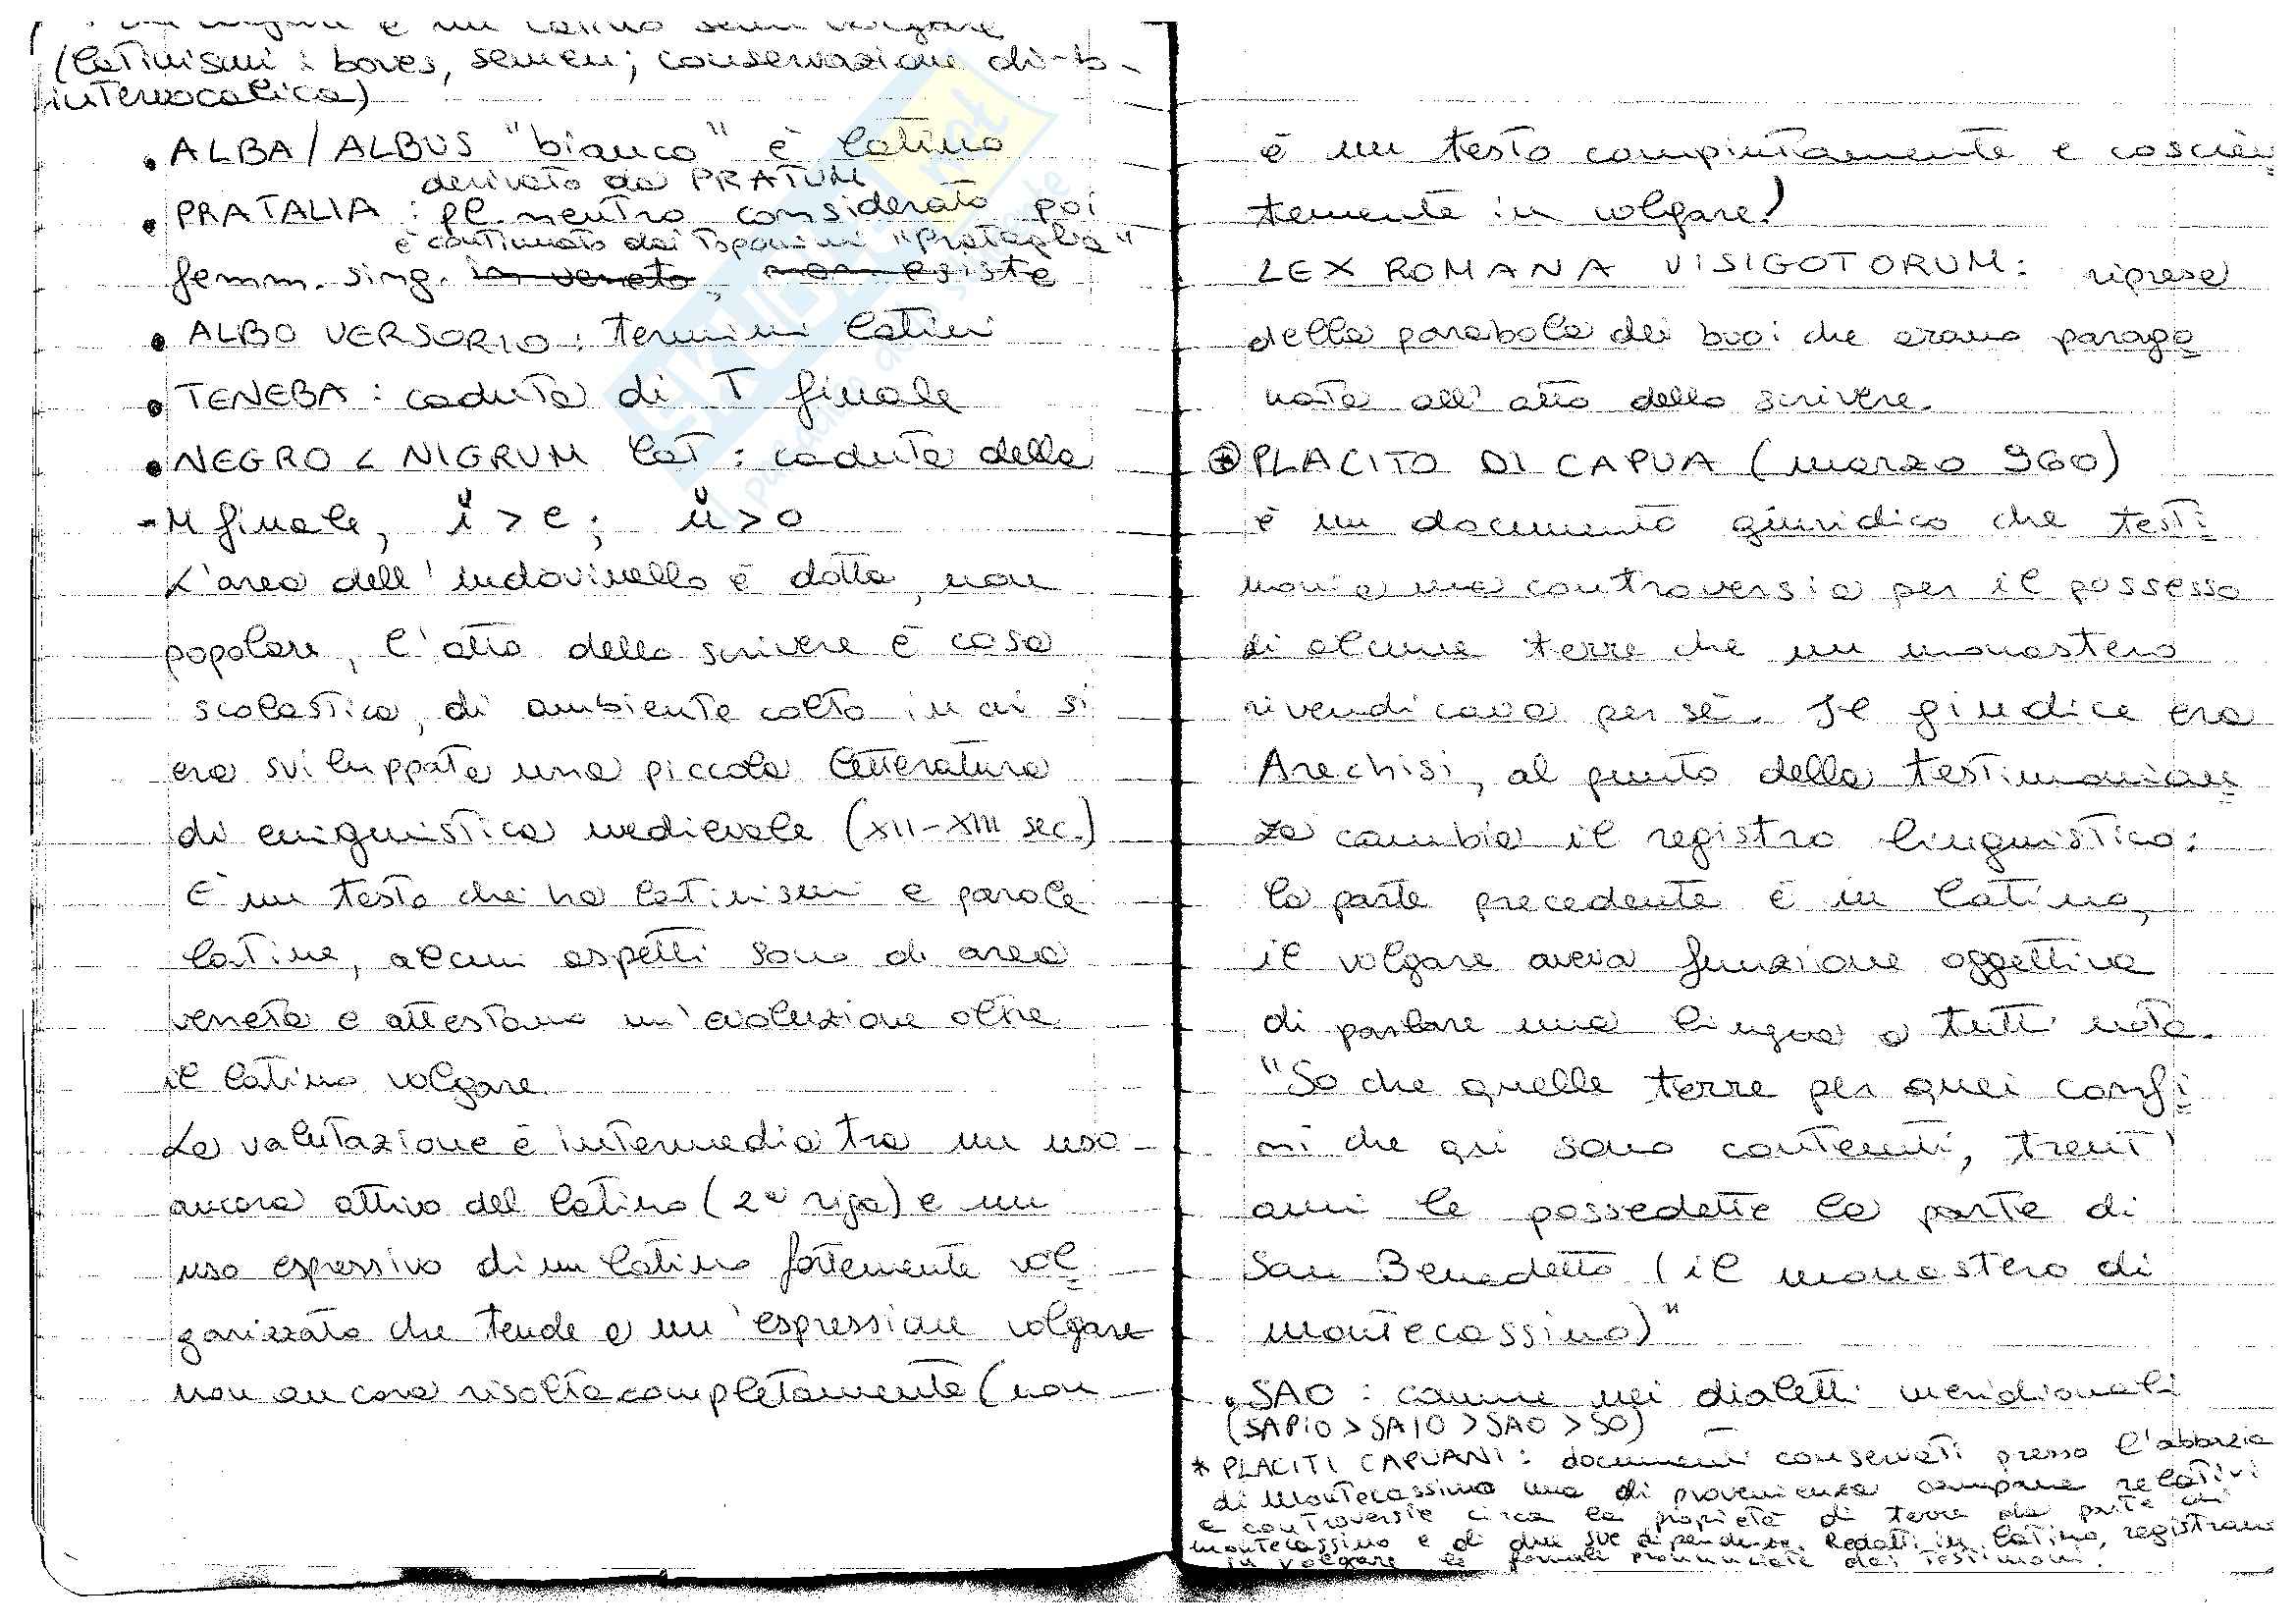 è un latino semi volgare
(latinismi: boves, semen; conservazione di -b-
intervocalica)
• ALBA/ALBUS "bianco" è latino
derivato da PRATUM
• PRATALIA: pl. neutro considerato poi
è continuato dai toponimi "Prataglia"
femm. sing. in veneto, non esiste
• ALBO VERSORIO: termini latini
• TENEBA: caduta di T finale
• NEGRO < NIGRUM lat: caduta della
-M finale, ĭ > e; ŭ > o
L'area dell'indovinello è dotta, non
popolare, l'atto dello scrivere è cosa
scolastica, di ambiente colto in cui si
era sviluppata una piccola letteratura
di enigmistica medievale (XII-XIII sec.)
È un testo che ha latinismi e parole
latine, alcuni aspetti sono di area
veneta e attestano un'evoluzione oltre
il latino volgare.
La valutazione è intermedia tra un uso
ancora attivo del latino (2ª riga) e un
uso espressivo di un latino fortemente vol
garizzato che tende a un'espressione volgare
non ancora risolta completamente (non
è un testo compiutamente e coscien
temente in volgare!)
LEX ROMANA VISIGOTORUM: ripresa
della parabola dei buoi che erano parago
nata all'atto dello scrivere.
* PLACITO DI CAPUA (marzo 960)
è un documento giuridico che testi
monia una controversia per il possesso
di alcune terre che un monastero
rivendicava per sé. Il giudice era
Arechisi, al punto della testimonian
za cambia il registro linguistico:
la parte precedente è in latino,
il volgare aveva funzione oggettiva
di parlare una lingua a tutti nota.
"So che quelle terre per quei confi
ni che qui sono contenuti, trent'
anni le possedette la parte di
San Benedetto (il monastero di
Montecassino)"
• SAO: comune nei dialetti meridionali
(SAPIO > SAIO > SAO > SO)
* PLACITI CAPUANI: documenti conservati presso l'abbazia
di Montecassino ma di provenienza campana relativi
a controversie circa la proprietà di terre da parte di
Montecassino e di due sue dipendenze. Redatti in latino, registrano
in volgare le formule pronunciate dai testimoni.